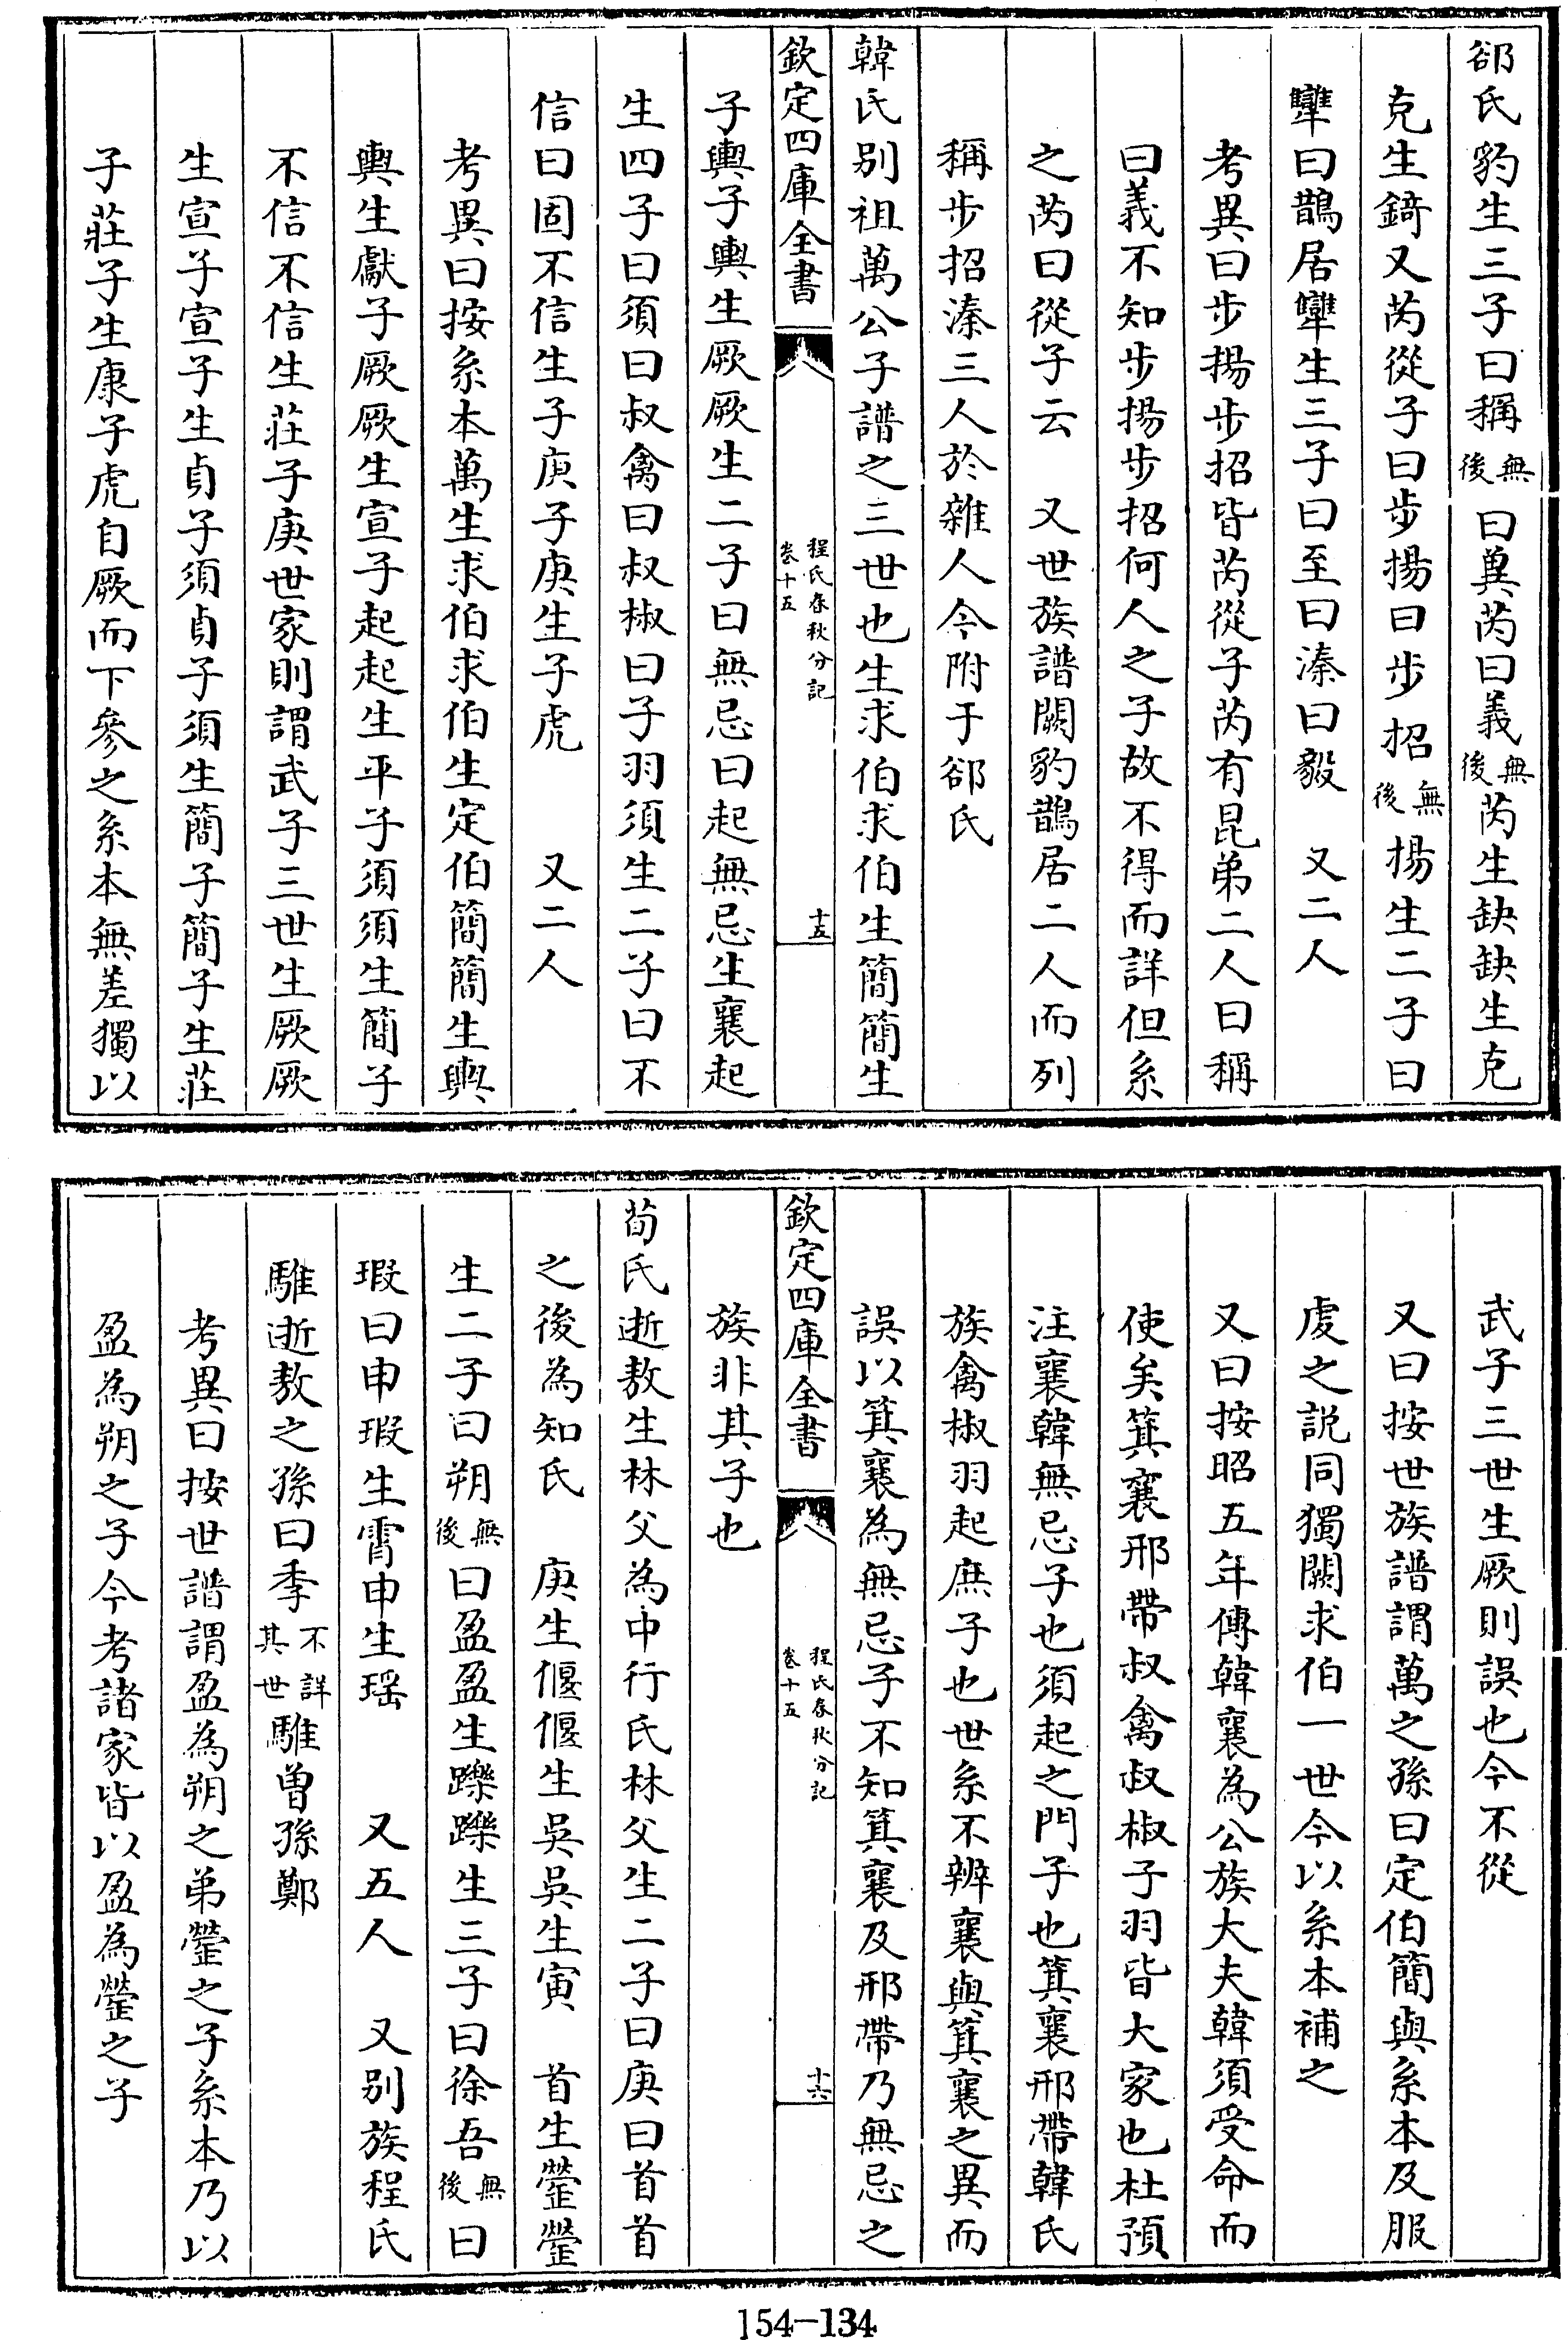 郤氏豹生三子曰稱無後曰㒷芮曰義無後芮生缺缺生克
克生錡又芮從子曰步揚曰步招無後揚生二子曰
犫曰鵲居犫生三子曰至曰溱曰毅　又二人
考異曰步揚步招皆芮從子芮有昆弟二人曰稱
曰義不知步揚步招何人之子故不得而詳但系
之芮曰從子云　又世族譜闕豹鵲居二人而列
稱步招溱三人於雜人今附于郤氏
韓氏別祖萬公子譜之三世也生求伯求伯生簡簡生
欽定四庫全書
程氏春秋分記
卷十五
十五
子輿子輿生厥厥生二子曰無忌曰起無忌生襄起
生四子曰須曰叔禽曰叔椒曰子羽須生二子曰不
信曰固不信生子庚子庚生子虎　又二人
考異曰按系本萬生求伯求伯生定伯簡簡生輿
輿生獻子厥厥生宣子起起生平子須須生簡子
不信不信生莊子庚世家則謂武子三世生厥厥
生宣子宣子生貞子須貞子須生簡子簡子生莊
子莊子生康子虎自厥而下參之系本無差獨以
武子三世生厥則誤也今不從
又曰按世族譜謂萬之孫曰定伯簡與系本及服
虔之説同獨闕求伯一世今以系本補之
又曰按昭五年傳韓襄為公族大夫韓須受命而
使矣箕襄邢帶叔禽叔椒子羽皆大家也杜預
注襄韓無忌子也須起之門子也箕襄邢帶韓氏
族禽椒羽起庶子也世系不辨襄與箕襄之異而
誤以箕襄為無忌子不知箕襄及邢帶乃無忌之
欽定四庫全書
程氏春秋分記
卷十五
十六
族非其子也
荀氏逝敖生林父為中行氏林父生二子曰庚曰首首
之後為知氏　庚生偃偃生吳吳生寅　首生罃罃
生二子曰朔無後曰盈盈生躒躒生三子曰徐吾無後曰
瑕曰申瑕生霄申生瑶　又五人　又別族程氏
騅逝敖之孫曰季不詳其世騅曽孫鄭
考異曰按世譜謂盈為朔之弟罃之子系本乃以
盈為朔之子今考諸家皆以盈為罃之子
154-134